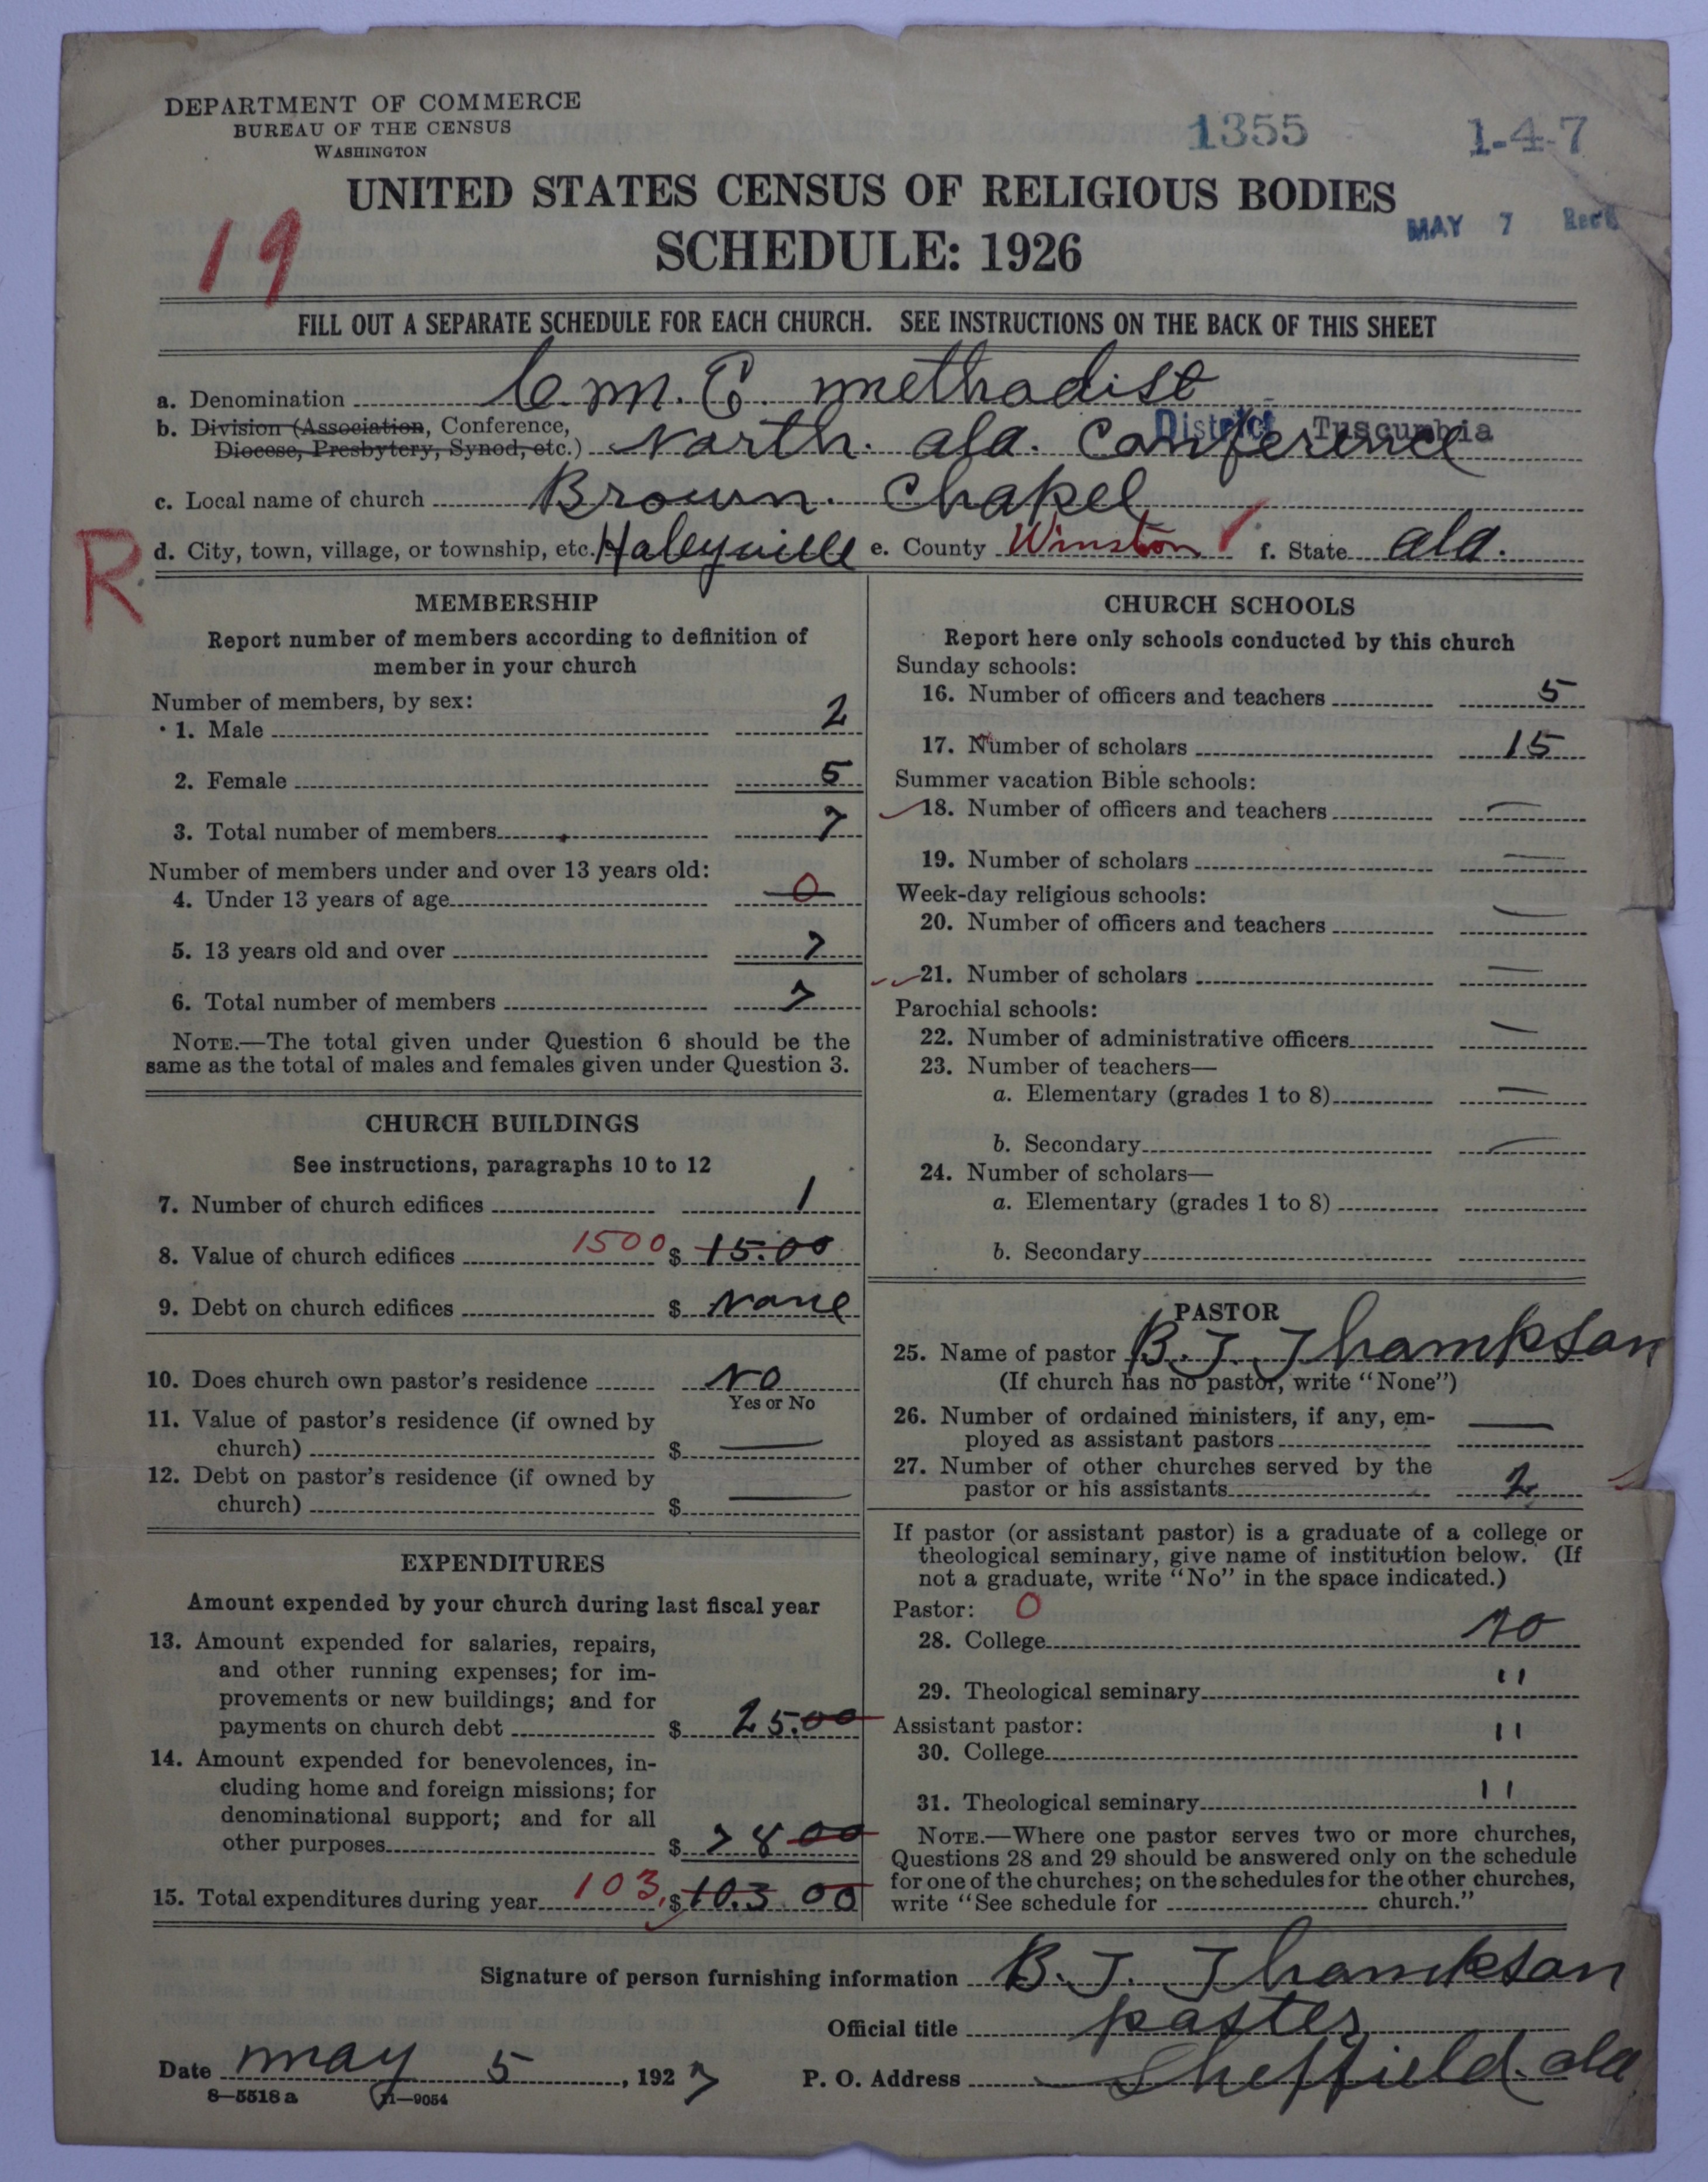 DEPARTMENT OF COMMERCE
BUREAU OF THE CENSUS
WASHINGTON
1355
1-4-7
UNITED STATES CENSUS OF RELIGIOUS BODIES
MAY 7 Rec'd
19
SCHEDULE: 1926
FILL OUT A SEPARATE SCHEDULE FOR EACH CHURCH. SEE INSTRUCTIONS ON THE BACK OF THIS SHEET
a. Denomination C. M. E. methodist
b. Division (Association, Conference,
District Tuscumbia
Diocese, Presbytery, Synod, etc.) North. ala. Conference
c. Local name of church Brown. Chapel
R
d. City, town, village, or township, etc. Haleyville e. County Winston f. State ala.
MEMBERSHIP
Report number of members according to definition of
member in your church
Number of members, by sex:
1. Male 2
2. Female 5
3. Total number of members 7
Number of members under and over 13 years old:
4. Under 13 years of age 0
5. 13 years old and over 7
6. Total number of members 7
NOTE.—The total given under Question 6 should be the
same as the total of males and females given under Question 3.
CHURCH BUILDINGS
See instructions, paragraphs 10 to 12
7. Number of church edifices 1
8. Value of church edifices 1500 $ 15.00
9. Debt on church edifices $ None
10. Does church own pastor's residence No
Yes or No
11. Value of pastor's residence (if owned by
church) $ —
12. Debt on pastor's residence (if owned by
church) $ —
EXPENDITURES
Amount expended by your church during last fiscal year
13. Amount expended for salaries, repairs,
and other running expenses; for im-
provements or new buildings; and for
payments on church debt $ 25.00
14. Amount expended for benevolences, in-
cluding home and foreign missions; for
denominational support; and for all
other purposes $ 78 00
15. Total expenditures during year 103. $ 103 00
CHURCH SCHOOLS
Report here only schools conducted by this church
Sunday schools:
16. Number of officers and teachers 5
17. Number of scholars 15
Summer vacation Bible schools:
18. Number of officers and teachers —
19. Number of scholars —
Week-day religious schools:
20. Number of officers and teachers —
21. Number of scholars —
Parochial schools:
22. Number of administrative officers —
23. Number of teachers—
a. Elementary (grades 1 to 8) —
b. Secondary —
24. Number of scholars—
a. Elementary (grades 1 to 8)
b. Secondary
PASTOR
25. Name of pastor B. J. Thompkson
(If church has no pastor, write "None")
26. Number of ordained ministers, if any, em-
ployed as assistant pastors —
27. Number of other churches served by the
pastor or his assistants 2
If pastor (or assistant pastor) is a graduate of a college or
theological seminary, give name of institution below. (If
not a graduate, write "No" in the space indicated.)
Pastor: 0
28. College No
29. Theological seminary "
Assistant pastor:
30. College "
31. Theological seminary "
NOTE.—Where one pastor serves two or more churches,
Questions 28 and 29 should be answered only on the schedule
for one of the churches; on the schedules for the other churches,
write "See schedule for church."
Signature of person furnishing information B. J. Thompkson
Official title paster
Date may 5, 1927
P. O. Address Sheffield. ala
8—5518 a 11—9054